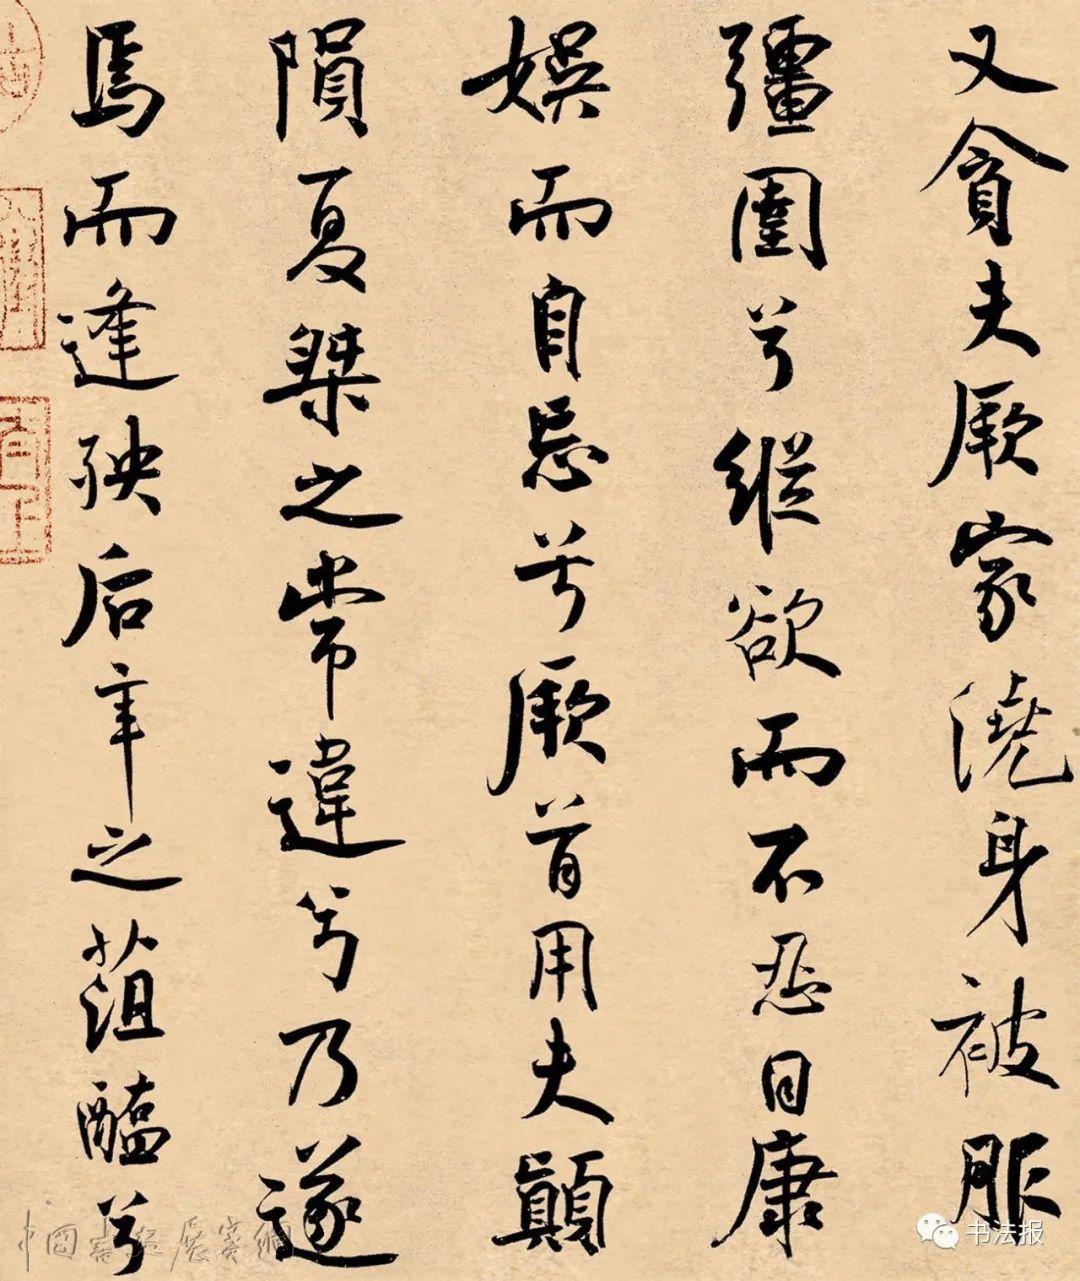 又貪夫厥家澆身被服
彊圉兮縱欲而不忍日康
娛而自忘兮厥首用夫顛
隕夏桀之常違兮乃遂
焉而逢殃后辛之菹醢兮
中國書法展賽網
书法报